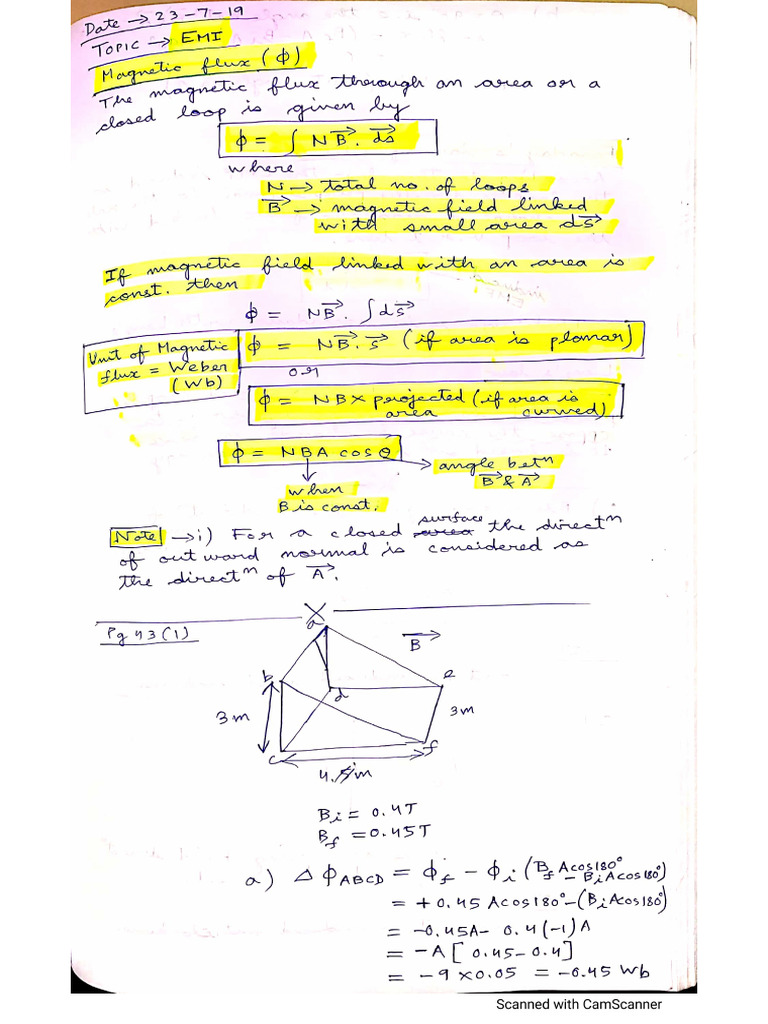 Date → 23-7-19
TOPIC → EMI
Magnetic flux (Φ)
The magnetic flux through an area or a
closed loop is given by
ϕ = ∫ N B⃗ . ds⃗
where
N → total no. of loops
B⃗ → magnetic field linked
with small area ds⃗
If magnetic field linked with an area is
const. then
ϕ = NB⃗ . ∫ds⃗
Unit of Magnetic
flux = Weber
(Wb)
ϕ = NB⃗ . s⃗ (if area is planar)
or
ϕ = NBX projected (if area is
area curved)
ϕ = NBA cosθ
→ angle betⁿ
B⃗ & A⃗
when
B is const.
Note → i) For a closed surface the directⁿ
of outward normal is considered as
the directⁿ of A⃗.
X
Pg 43(1)
a
B⃗
b
e
d
3m
3m
c
f
4. m
Bi = 0.4T
Bf = 0.45T
a) ΔϕABCD = ϕf - ϕi (Bf Acos180° - BiAcos180°)
= +0.45 Acos180° - (BiAcos180°)
= -0.45A - 0.4(-1)A
= -A[0.45-0.4]
= -9 × 0.05 = -0.45 Wb
Scanned with CamScanner